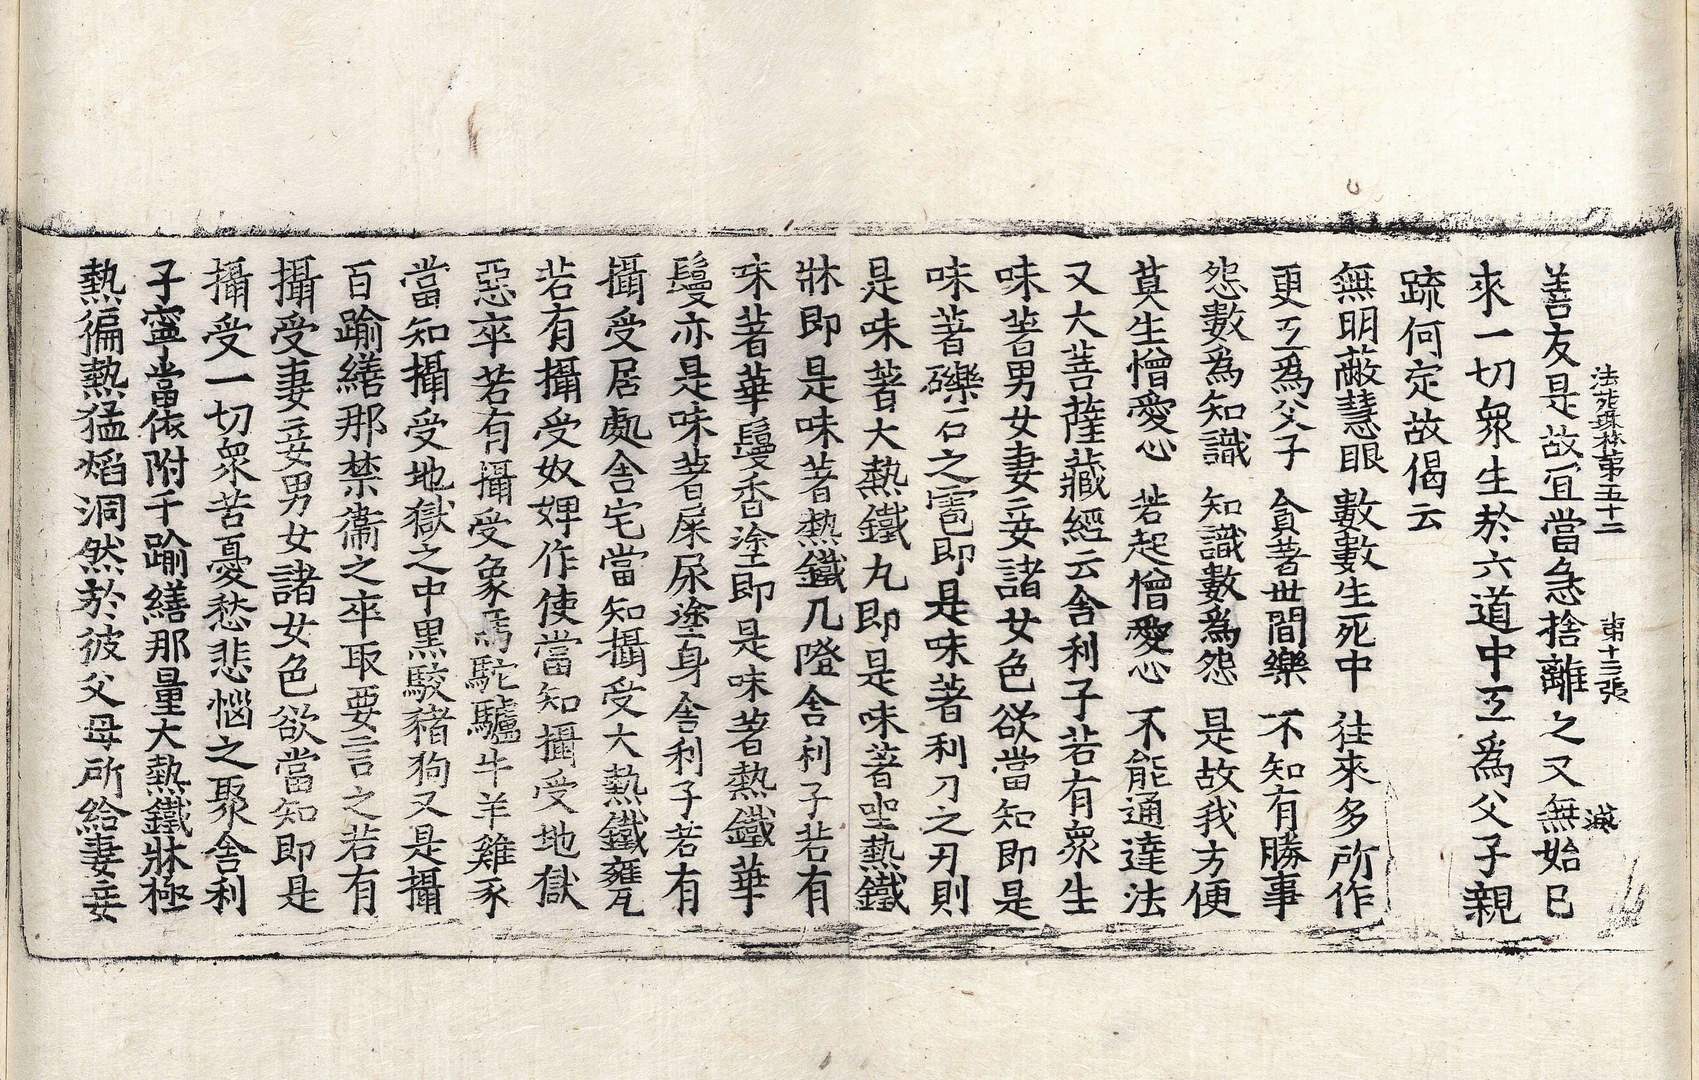 法苑珠林第五十二 第十三張 滅
善友是故宜當急捨離之又無始已
來一切衆生於六道中互爲父子親
疏何定故偈云
無明蔽慧眼 數數生死中 往來多所作
更互爲父子 貪著世間樂 不知有勝事
怨數爲知識 知識數爲怨 是故我方便
莫生憎愛心 若起憎愛心 不能通達法
又大菩薩藏經云舍利子若有衆生
味著男女妻妾諸女色欲當知即是
味著礫石之雹即是味著利刀之刃則
是味著大熱鐵丸即是味著坐熱鐵
牀即是味著熱鐵几隥舍利子若有
味著華鬘香塗即是味著熱鐵華
鬘亦是味著屎尿塗身舍利子若有
攝受居處舍宅當知攝受大熱鐵甕
若有攝受奴婢作使當知攝受地獄
惡卒若有攝受象馬駝驢牛羊雞豕
當知攝受地獄之中黑駮豬狗又是攝
百踰繕那禁衞之卒取要言之若有
攝受妻妾男女諸女色欲當知即是
攝受一切衆苦憂愁悲惱之聚舍利
子寧當依附千踰繕那量大熱鐵牀極
熱徧熱猛焰洞然於彼父母所給妻妾